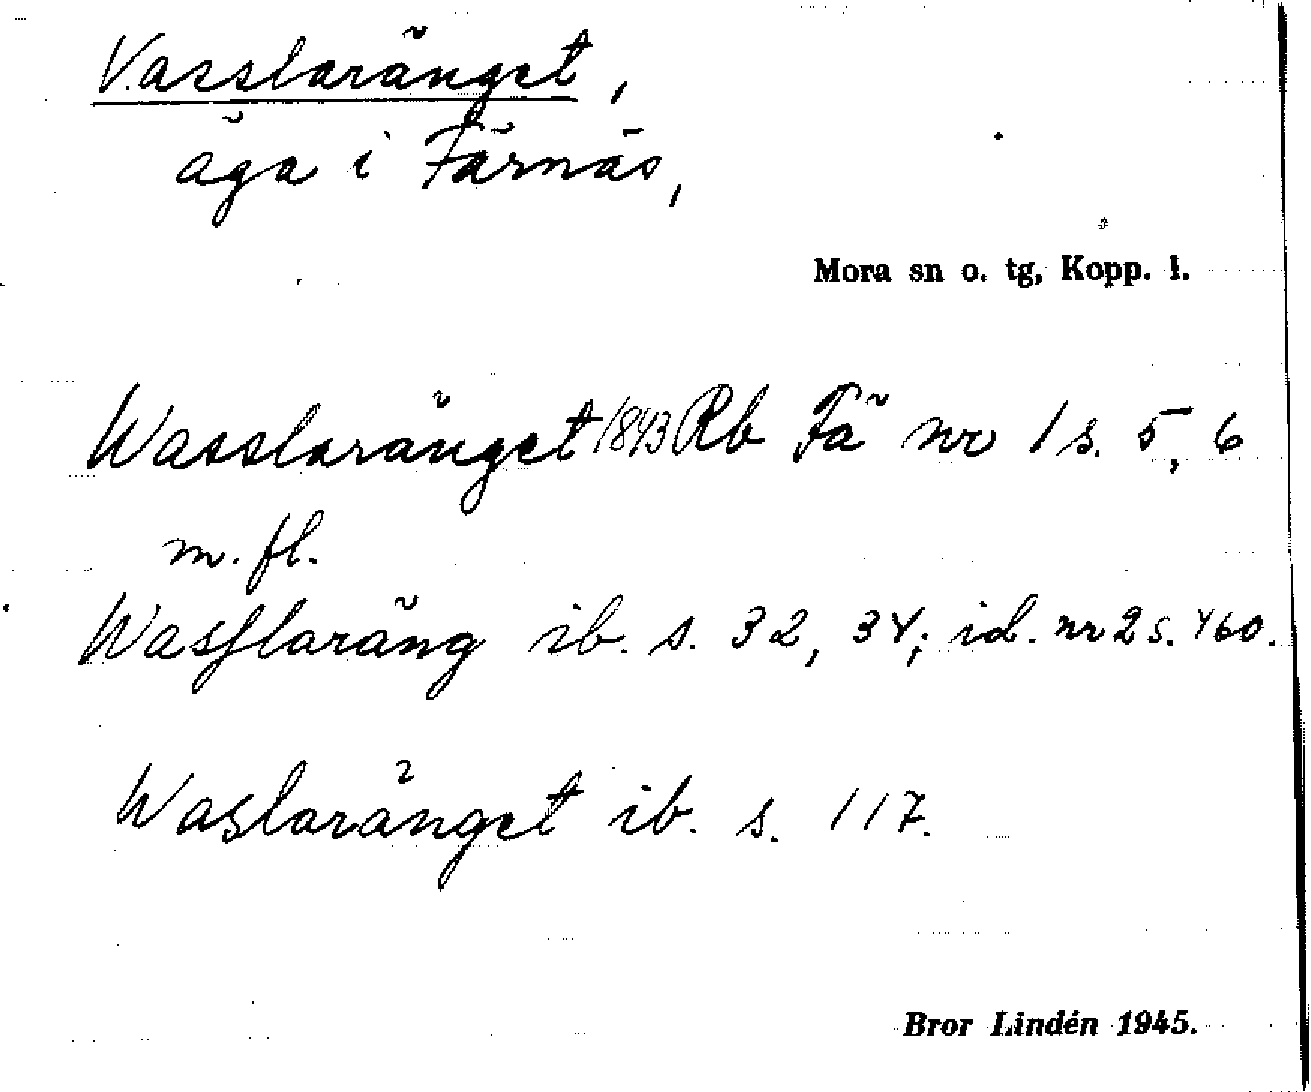 Vasslaränget,
äga i Färnäs,
Mora sn o. tg, Kopp. l.
Wasslaränget 1843 Rb Fä nr 1 s. 5, 6
m. fl.
Wasslaräng ib. s. 32, 34; id. nr 2 s. 460.
Waslaränget ib. s. 117.
Bror Lindén 1945.